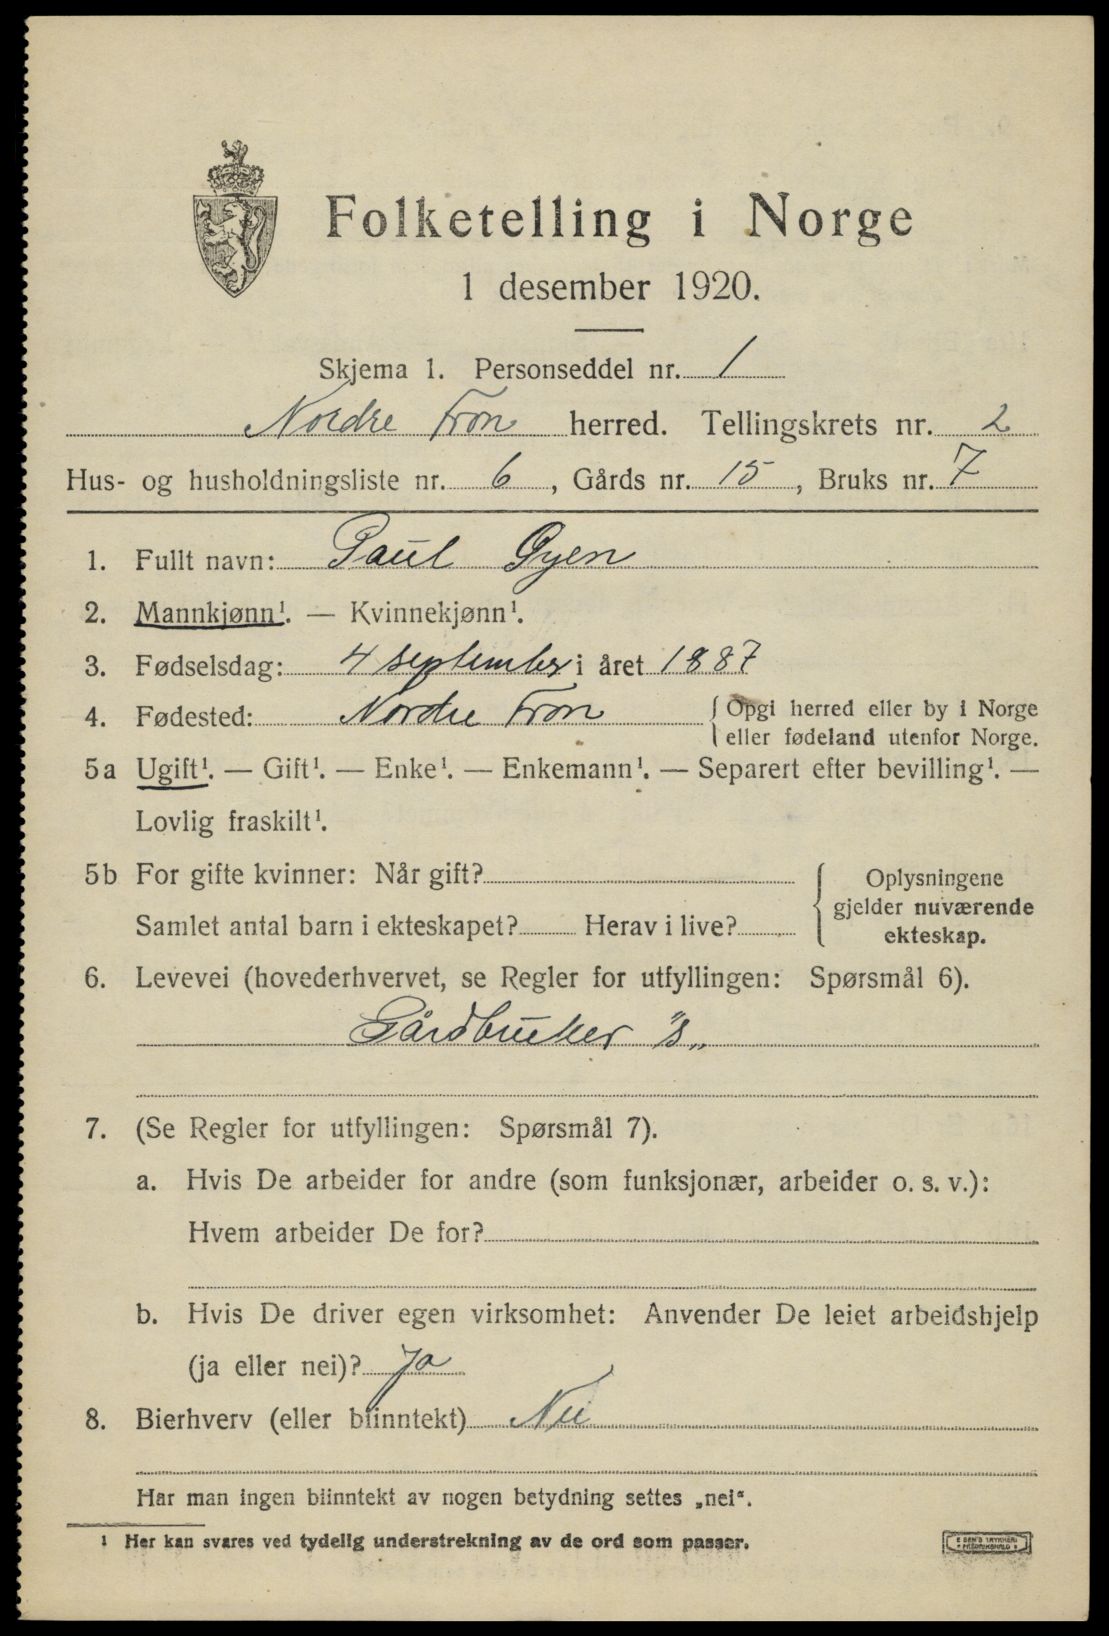 Folketelling i Norge
1 desember 1920.
Skjema 1. Personseddel nr. 1
Nordre Fron herred. Tellingskrets nr. 2
Hus- og husholdningsliste nr. 6, Gårds nr. 15, Bruks nr. 7
1. Fullt navn: Paul Øyen
2. Mannkjønn¹. — Kvinnekjønn¹.
3. Fødselsdag: 4 september i året 1887
4. Fødested: Nordre Fron { Opgi herred eller by i Norge
eller fødeland utenfor Norge.
5a Ugift¹. — Gift¹. — Enke¹. — Enkemann¹. — Separert efter bevilling¹. —
Lovlig fraskilt¹.
5b For gifte kvinner: Når gift? { Oplysningene
gjelder nuværende
Samlet antal barn i ekteskapet? Herav i live?
ekteskap.
6. Levevei (hovederhvervet, se Regler for utfyllingen: Spørsmål 6).
Gårdbruker "s„
7. (Se Regler for utfyllingen: Spørsmål 7).
a. Hvis De arbeider for andre (som funksjonær, arbeider o. s. v.):
Hvem arbeider De for?
b. Hvis De driver egen virksomhet: Anvender De leiet arbeidshjelp
(ja eller nei)? Ja
8. Bierhverv (eller biinntekt) Nei
Har man ingen biinntekt av nogen betydning settes „nei“.
¹ Her kan svares ved tydelig understrekning av de ord som passer.